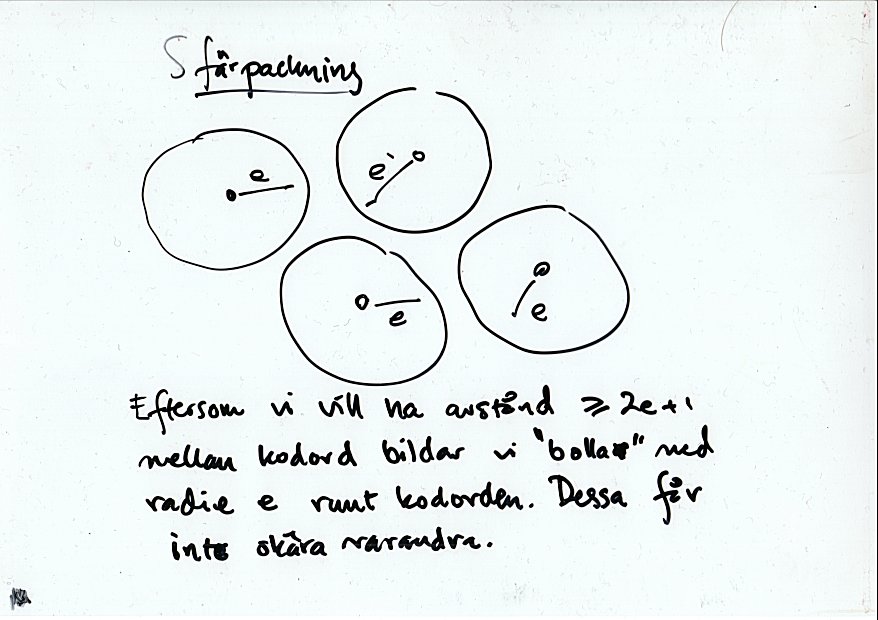 Sfärpackning
e
e
e
e
Eftersom vi vill ha avstånd ≥ 2e+1
mellan kodord bildar vi "bollar" med
radie e runt kodorden. Dessa får
inte skära varandra.